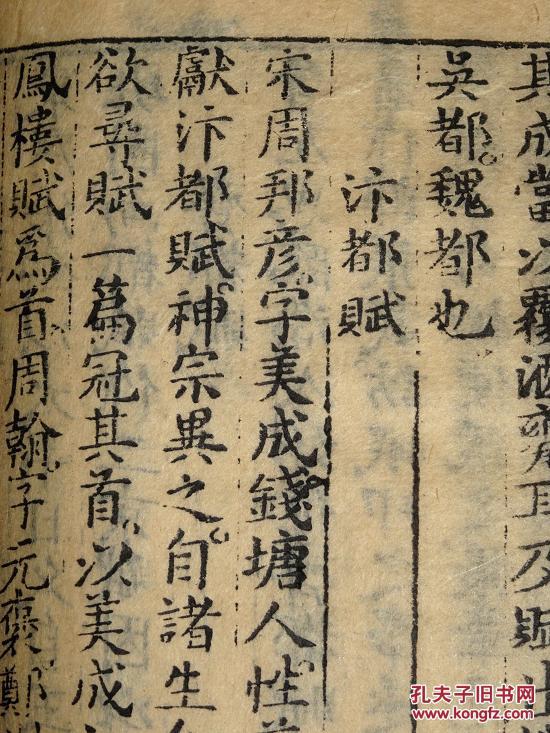 其成當以覆酒甕耳及賦出
吳都魏都也
汴都賦
宋周邦彥字美成錢塘人性
獻汴都賦神宗異之自諸生
欲尋賦一篇冠其首以美成
鳳樓賦爲首周翰字元褒鄭
孔夫子旧书网
www.kongfz.com